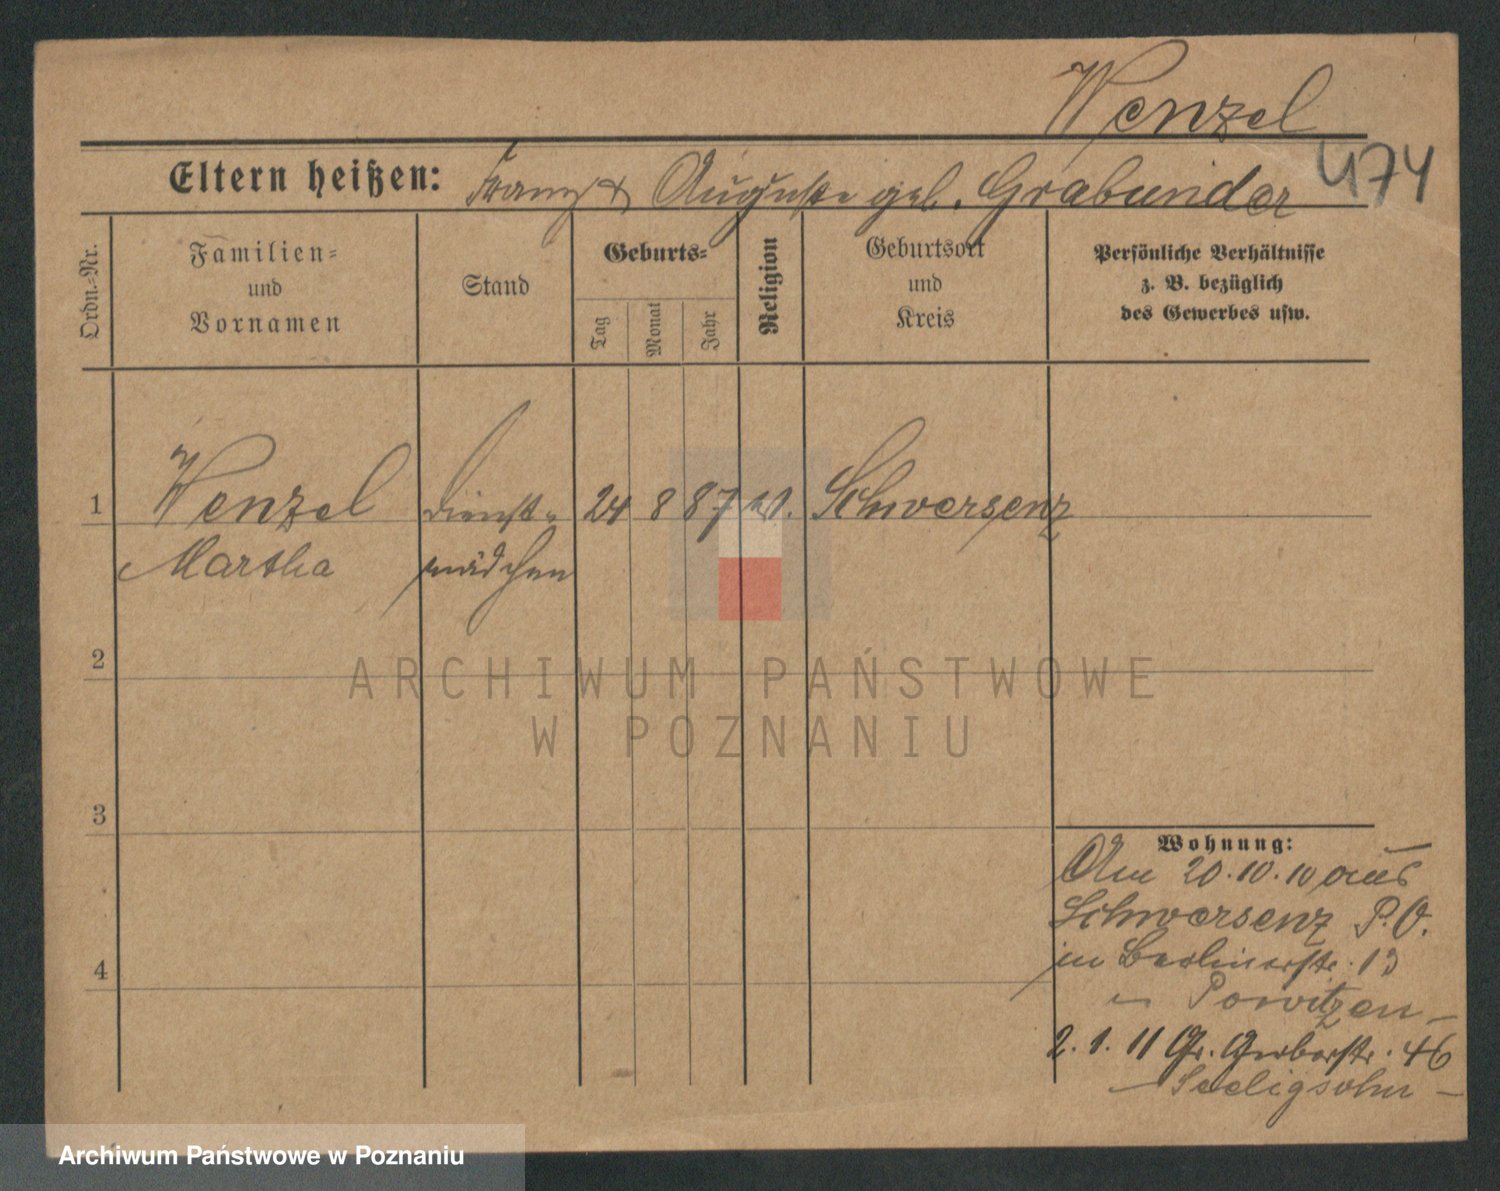 Wenzel
474
Eltern heißen: Franz & Auguste geb. Grabunder
Ordn.-Nr.
Familien-
und
Vornamen
Stand
Geburts-
Tag
Monat
Jahr
Religion
Geburtsort
und
Kreis
Persönliche Verhältnisse
z. B. bezüglich
des Gewerbes usw.
1 Wenzel Dienst- 24 8 87 Schwersenz
Martha mädchen
2
3
4
Wohnung:
Am 20.10.10 aus
Schwersenz P.O.
in Berlinerstr. 13
Powitzen –
2.1.11 Gr. Gerberstr. 46
– Seeligsohn –
ARCHIWUM PAŃSTWOWE
W POZNANIU
Archiwum Państwowe w Poznaniu